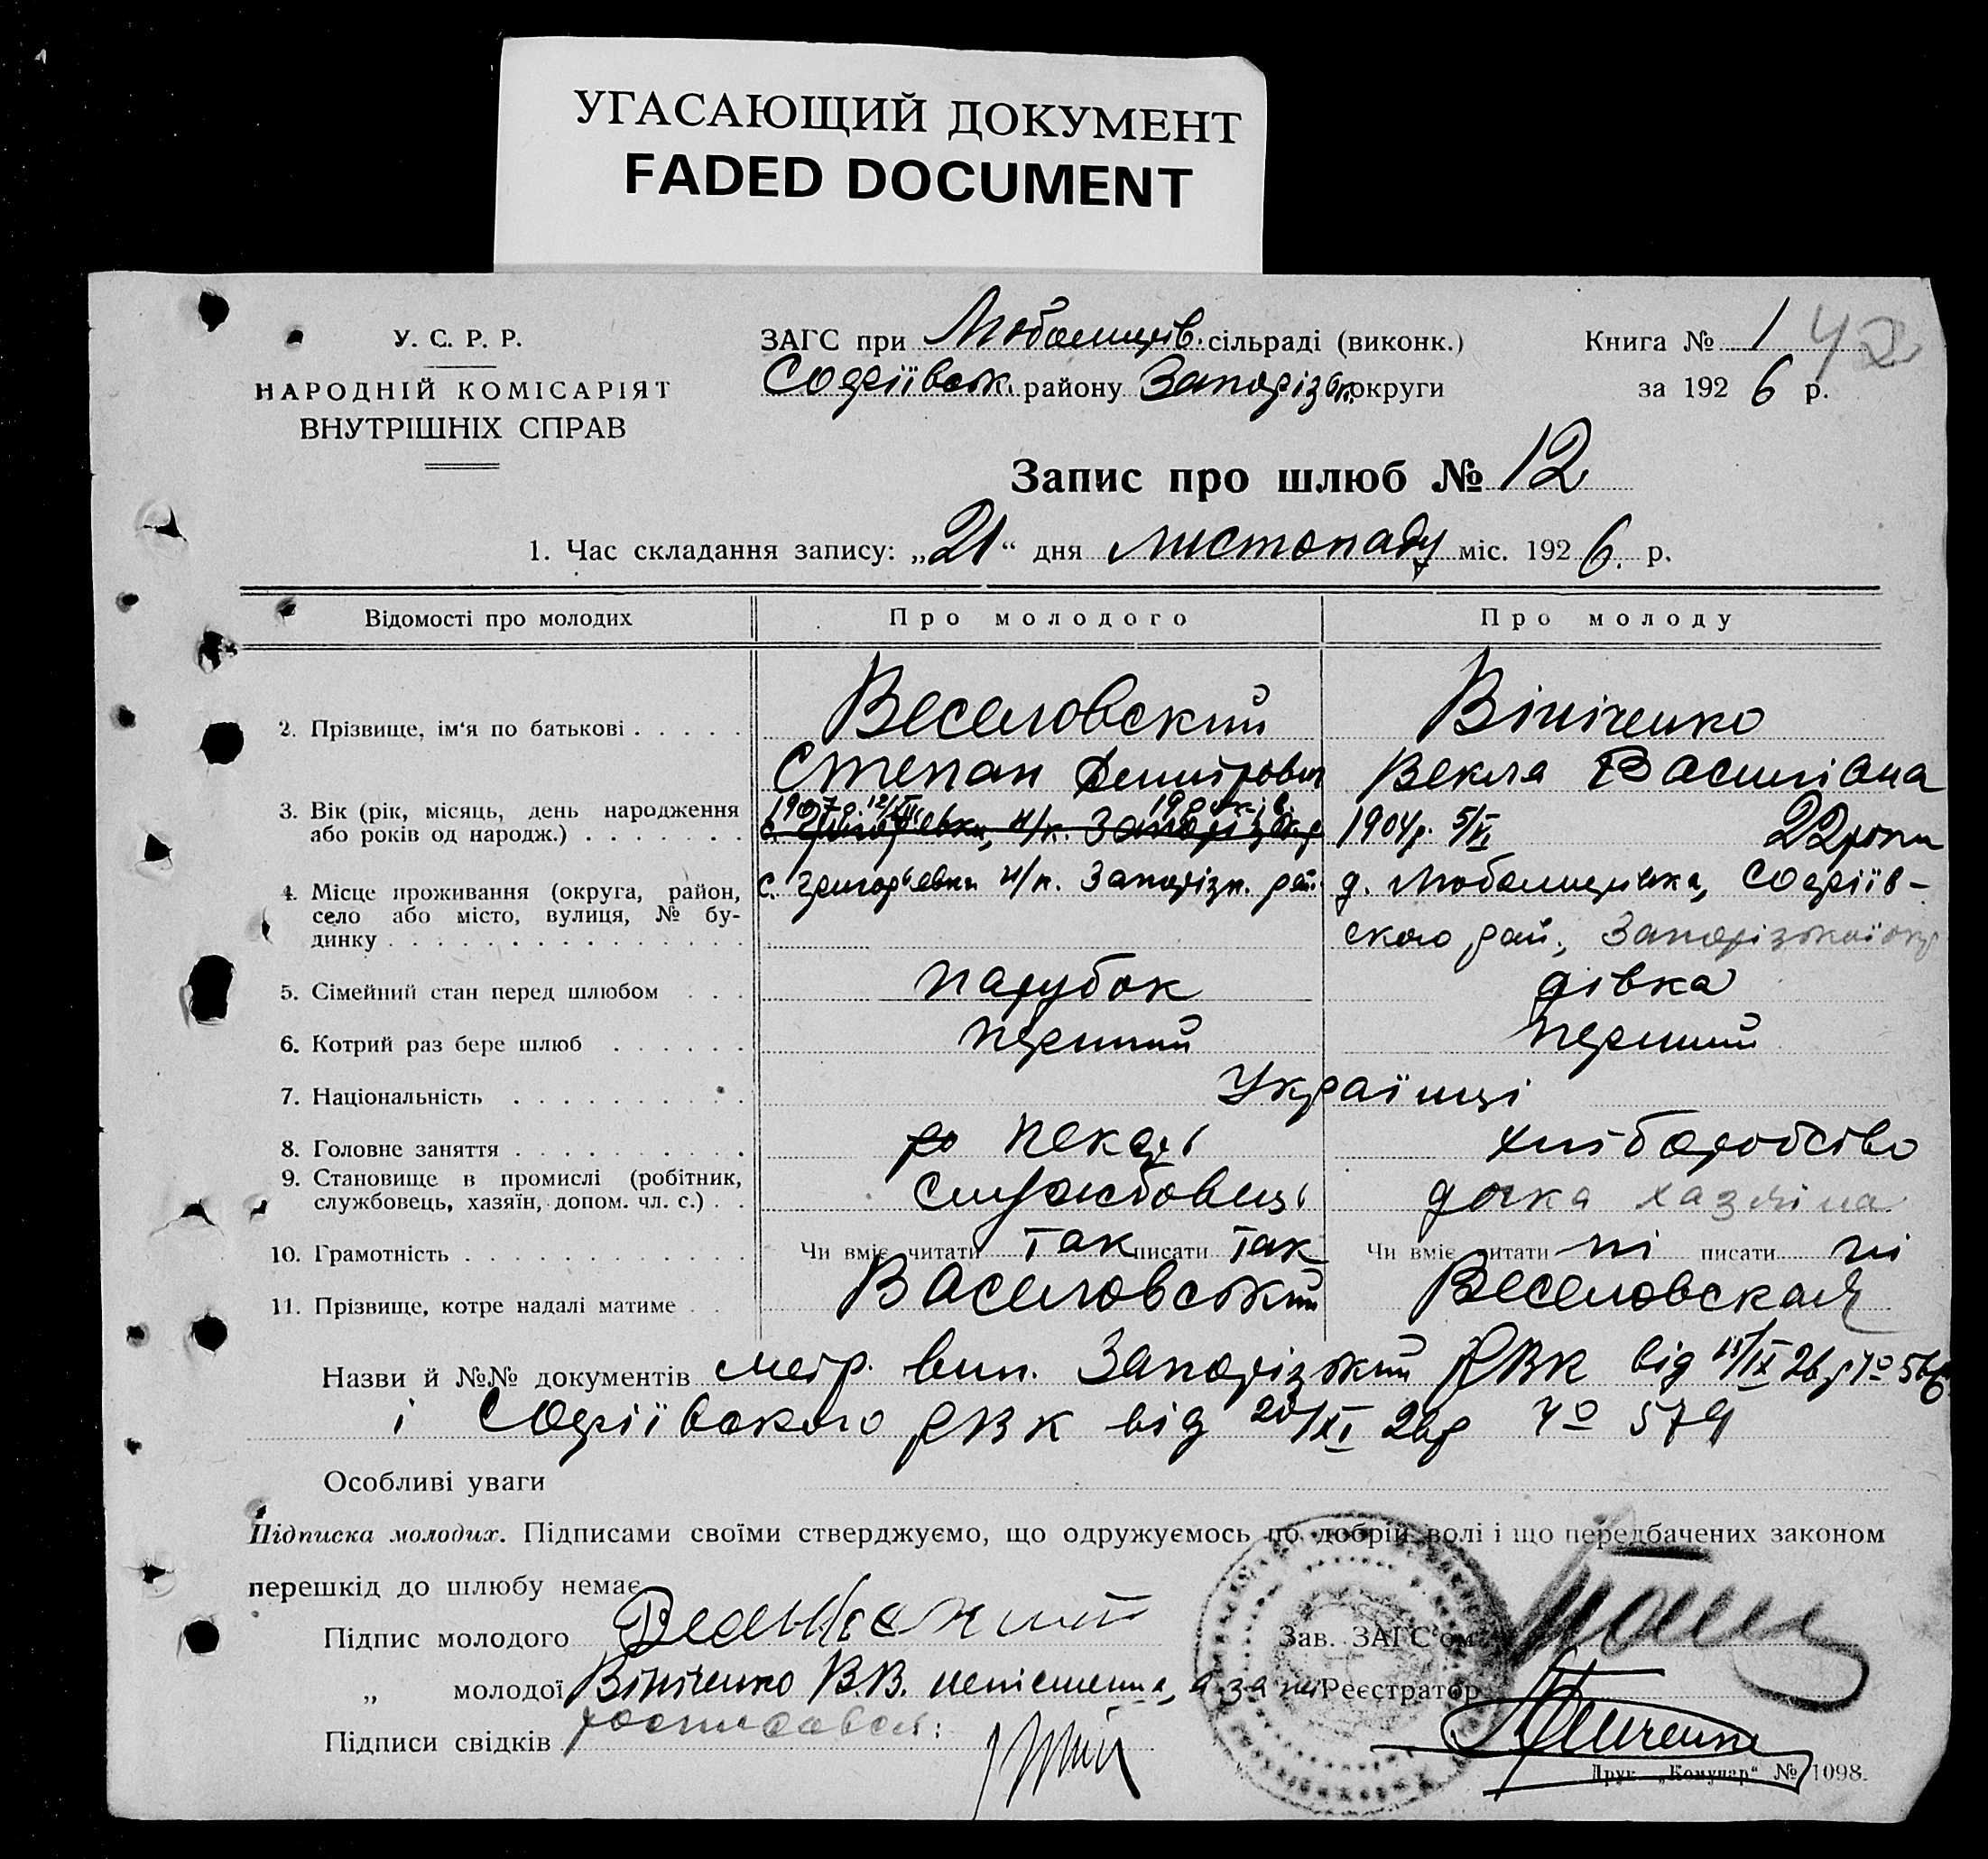 УГАСАЮЩИЙ ДОКУМЕНТ
FADED DOCUMENT
У. С. Р. Р.
НАРОДНІЙ КОМІСАРІЯТ
ВНУТРІШНІХ СПРАВ
ЗАГС при Любомирів. сільраді (виконк.)
Софіївськ. району Запорізьк. округи
Книга № 1 42
за 1926 р.
Запис про шлюб № 12
1. Час складання запису: „21“ дня листопаду міс. 1926. р.
Відомості про молодих Про молодого Про молоду
2. Прізвище, ім‘я по батькові Веселовский Вініченко
Степан Демитрович Векла Василівна
3. Вік (рік, місяць, день народження або років од народж.) 1907 р. 12/XII 19 років. 1904 р. 5/VI 22 роки
с. Григорьевки, н/к. Запорізк. р
4. Місце проживання (округа, район, село або місто, вулиця, № будинку с. Григорьевки н/к. Запорізк. рай. д. Любомировка, Софіїв-
ского рай., Запорізької окр
5. Сімейний стан перед шлюбом парубок дівка
6. Котрий раз бере шлюб перший перший
7. Національність Українці
8. Головне заняття ро пекарь хліборобство
9. Становище в промислі (робітник, службовець, хазяїн, допом. чл. с.) службовець дочка хазяіна
10. Грамотність Чи вміє читати так писати так Чи вміє читати ні писати ні
11. Прізвище, котре надалі матиме Васеловський Веселовская
Назви й №№ документів метр. вип. Запорізький РВК від 15/IX 26 р
і Софіївского РВК від 20/XI 26 р № 579
Особливі уваги
Підписка молодих. Підписами своїми стверджуємо, що одружуємось по добрій волі і що передбачених законом
перешкід до шлюбу немає
Підпис молодого Зав. ЗАГС‘ом
„ молодої Вініченко В.В. неписменна, а за неї Реєстратор
Підписи свідків росписався:
Друк. „Комунар“ № 1098.